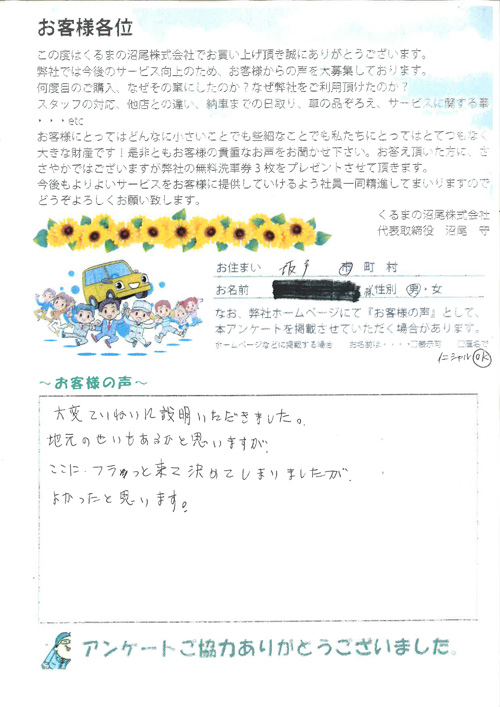 お客様各位
この度はくるまの沼尾株式会社でお買い上げ頂き誠にありがとうございます。
弊社では今後のサービス向上のため、お客様からの声を大募集しております。
何度目のご購入、なぜその車にしたのか？なぜ弊社をご利用頂けたのか？
スタッフの対応、他店との違い、納車までの日取り、車の品ぞろえ、サービスに関する事
・・・etc
お客様にとってはどんなに小さいことでも些細なことでも私たちにとってはとてつもなく
大きな財産です！是非ともお客様の貴重なお声をお聞かせ下さい。お答え頂いた方に、さ
さやかではございますが弊社の無料洗車券３枚をプレゼントさせて頂きます。
今後もよりよいサービスをお客様に提供していけるよう社員一同精進してまいりますので
どうぞよろしくお願い致します。
くるまの沼尾株式会社
代表取締役 沼尾 守
お住まい 坂戸 市 町 村
お名前 様 性別 男・女
なお、弊社ホームページにて『お客様の声』として、
本アンケートを掲載させていただく場合があります。
ホームページなどに掲載する場合 お名前は・・・・□表示可 □匿名で
イニシャルOK
～お客様の声～
大変ていねいに説明いただきました。
地元のせいもあるかと思いますが
ここに、フラっと来て決めてしまいましたが、
よかったと思います。
アンケートご協力ありがとうございました。